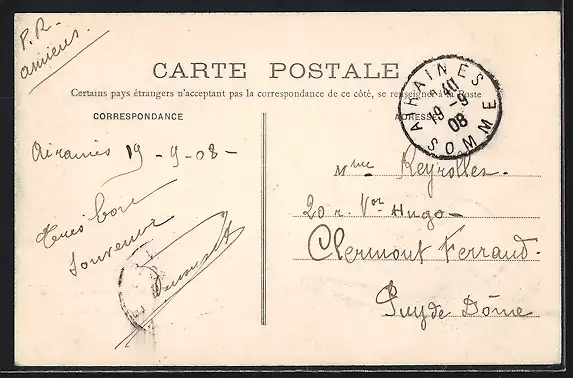 P.R.
amiens.
CARTE POSTALE
Certains pays étrangers n'acceptant pas la correspondance de ce côté, se renseigner à la Poste
CORRESPONDANCE
ADRESSE
AIRAINES
19 - 9
08
SOMME
Airaines 19 - 9 - 08 -
Très bon
Souvenir
Mme Reyrolles.
20 r. Vor Hugo -
Clermont Ferrand.
Puy de Dôme